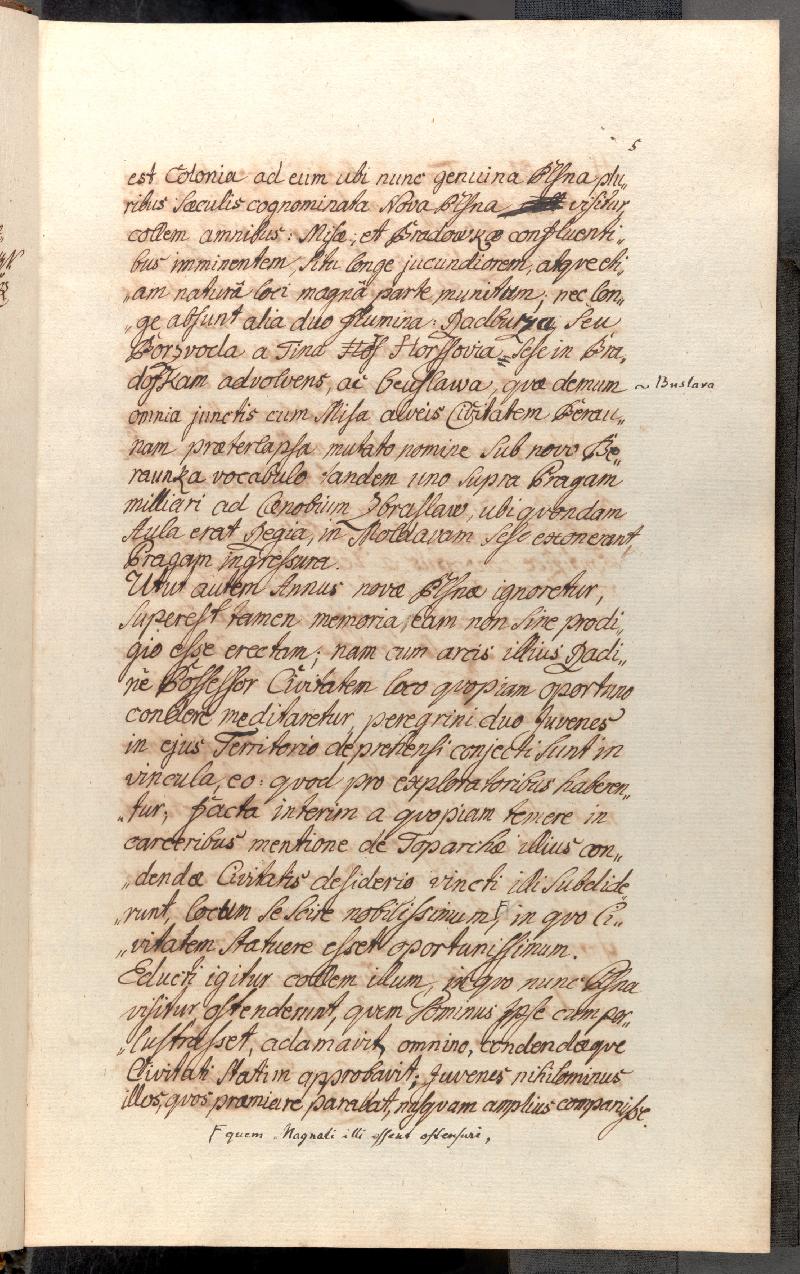 5
est Colonia ad eum ubi nunc genuina Pilsna plu„
ribus sæculis cognominata Nova Pilsna visitur
collem amnibus: Misæ, et Bradowkæ confluenti„
bus imminentem, situ longe jucundiorem, atqve eti„
„am naturâ loci magnâ parte munitum; nec lon„
„ge absunt alia duo flumina: Radbuza, seu
a Tina Horssovia sese in Bra„
doskam advolvens, ac Beuslawa, qvæ demum
~ Buslava
omnia junctis cum Misa alveis Civitatem Berau„
nam præterlapsa mutato nomine sub novo Be„
raunka vocabulo tandem uno supra Pragam
milliari ad Cœnobium Zbraslaw, ubi qvondam
Aula erat Regia, in Moldavam sese exonerant,
Pragam ingressura.
Utut autem Annus novæ Pilsnæ ignoretur,
superest tamen memoria, eam non sine prodi„
gio esse erectam; nam cum arcis illius Radi„
nê Possessor Civitatem loco qvopiam oportuno
condere meditaretur, peregrini duo Juvenes
in ejus Territorio deprehensi conjecti sunt in
vincula, eo: qvod pro exploratoribus haberen„
„tur; facta interim a qvopiam temere in
carceribus mentione de Toparchæ illius con„
„dendæ Civitatis desiderio vincti illi subdide
„runt, locum se scire nobilissimum F, in qvo Ci„
„vitatem statuere esset oportunissimum.
Educti igitur collem illum, in qvo nunc Pilsna
visitur ostenderunt, qvem Dominus ipse cum per„
„lustrasset, adamavit, omnino, condendæqve
Civitati statim approbavit; Juvenes nihilominus
illos, qvos præmiare parabat, nusqvam amplius comparuisse.
F quem Magnati illi essent ostensuri,